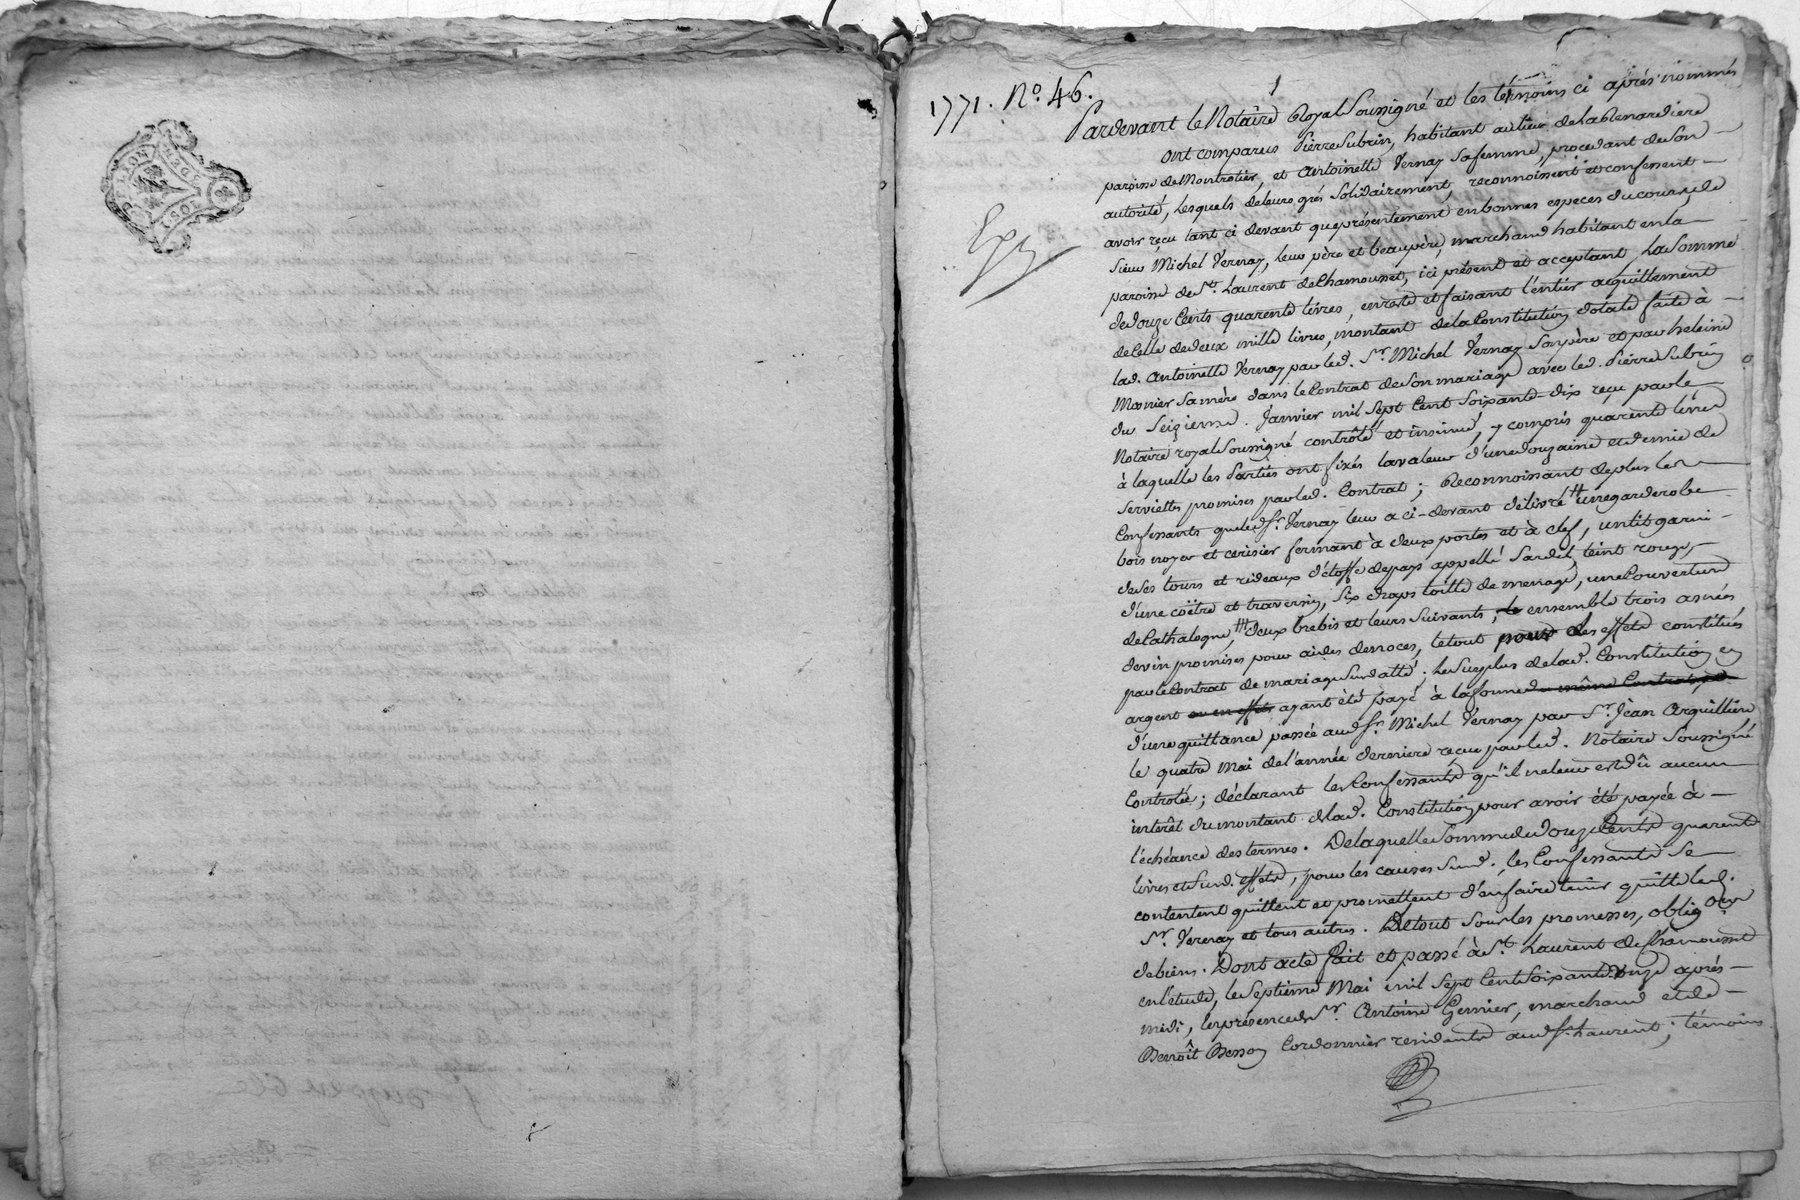 G. DE LYON
MOY. DE
1 SOL
1771. N.º 46.
1
Pardevant le Notaire Royal Soussigné et les témoins ci après nommés
ont comparus Pierre Subrin, habitant au lieu de la Blenardiere
paroisse de Montrotier, et Antoinette Vernay sa femme, procedant de son
autorité, lesquels de leurs grés solidairement, reconnoissent et confessent
avoir reçu tant ci devant que présentement en bonnes especes du cours, de
sieur Michel Vernay, leur père et beaupère, marchand habitant en la
paroisse de St. Laurent de Chamousset, ici présent et acceptant, la somme
de douze Cents quarente livres, en reste et faisant l'entier acquittement
de celle de deux mille livres, montant de la Constitution dotale faite à
lad. Antoinette Vernay par led. Sr. Michel Vernay son père et par heleine
Monier sa mère dans le Contrat de son mariage avec led. Pierre Subrin
du seizieme Janvier mil sept Cent soixante-dix reçu par le
Notaire royal Soussigné contrôlé et insinué, y compris quarente livres
à laquelle les Parties ont fixés la valeur d'une douzaine et demie de
serviettes promises par led. Contrat; Reconnoissant de plus les
Confessants que led. Sr. Vernay leur a ci-devant délivré une garderobe
bois noyer et cerisier fermant à deux portes et à clef, un lit garni
de ses tours et rideaux d'étoffe de pays appellé Sardis, teint rouge,
d'une coëtre et traversin, six draps toille de menage, une Couverture
de Cathalogne, deux brebis et leurs suivants, le ensemble trois asnées
de vin promises pour aides de noces, le tout pour des effets constitués
par le Contrat de mariage susdatté; le surplus de lad. Constitution en
argent ou en effets ayant été payé à la forme du même Contrat
d'une quittance passée aud. Sr. Michel Vernay par Sr. Jean Arquilliere
le quatre Mai de l'année derniere reçue par led. Notaire soussigné
Controlée; déclarant les Confessants qu'il ne leur est dû aucun
interêt du montant de lad. Constitution pour avoir été payée à
l'échéance des termes. De laquelle somme de douze Cents quarente
livres et susd. effets, pour les causes susd. les Confessants se
contentent quittent et promettent d'en faire tenir quitte led.
Sr. Vernay et tous autres. De tout sous les promesses, obligõn
de biens. Dont acte fait et passé à St. Laurent de Chamousset
en l'étude, le septieme Mai mil sept Cent soixante onze après
midi, en présence de Sr. Antoine Genier, marchand et de
Benoît Besson Cordonnier residants aud. St. Laurent; témoins